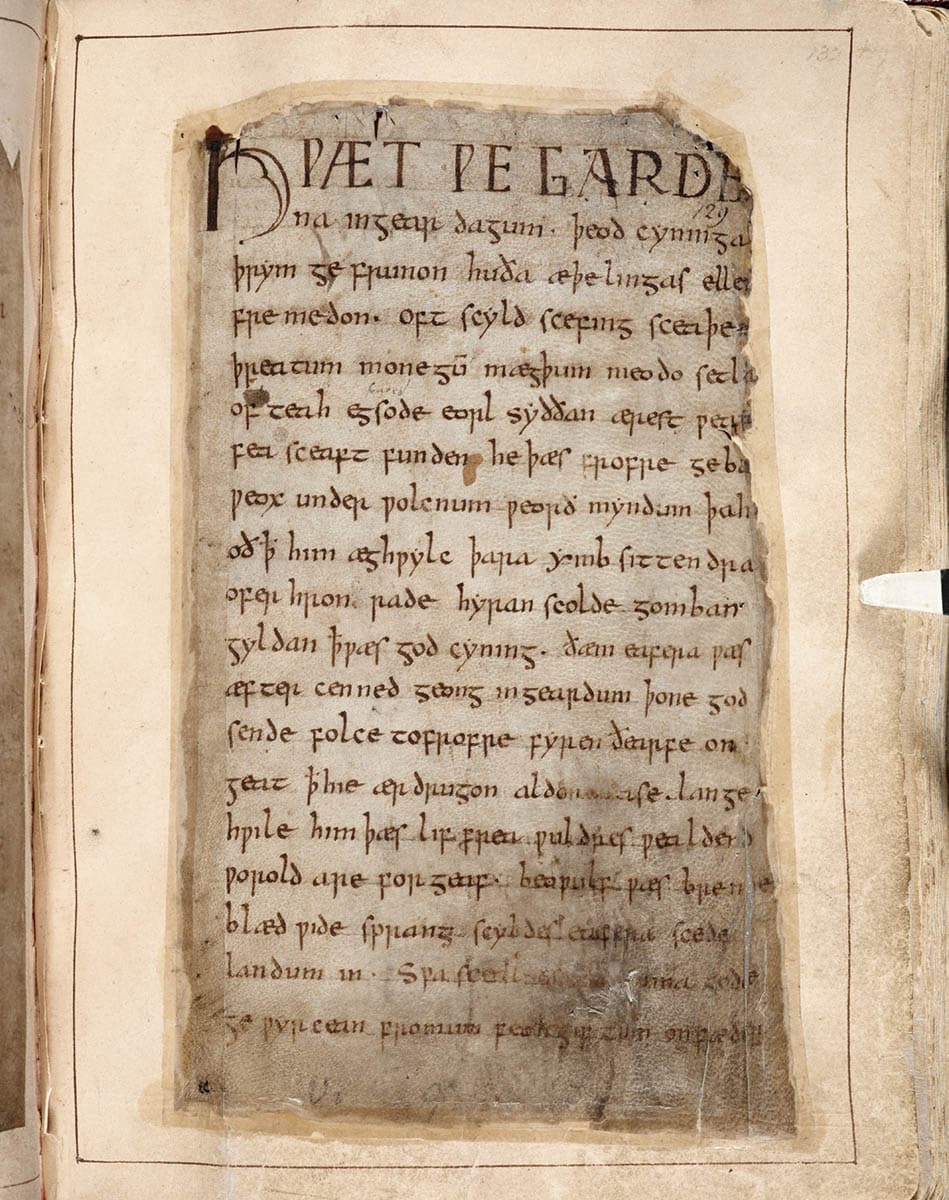 HǷÆT ǷE GARDE
129
na ingear dagum. þeod cyninga
þrym ge frunon huða æþelingas elle
fre medon. oft scyld scefing sceaþe
þreatum monegū mægþum meodo setla
of teah egsode eorl syððan ærest
fea sceaft funden he þæs frofre geba
ƿeox under ƿolcnum ƿeorð myndum þah
oð ꝥ him æghƿylc þara ymb sittendra
ofer hron rade hyran scolde gomban
gyldan ꝥ ƿæs god cyning. ðæm eafera ƿæs
æfter cenned geong ingeardum þone god
sende folce tofrofre fyren ðearfe on
geat ꝥ hie ær drugon lange
hƿile him þæs lif frea ƿuldres ƿealdend
ƿorold are for geaf. beoƿulf ƿæs breme
blæd ƿide sprang scyldes eafera scede
landum in. Sƿa gode
ge ƿyrcean fromum feoh giftum onfæder